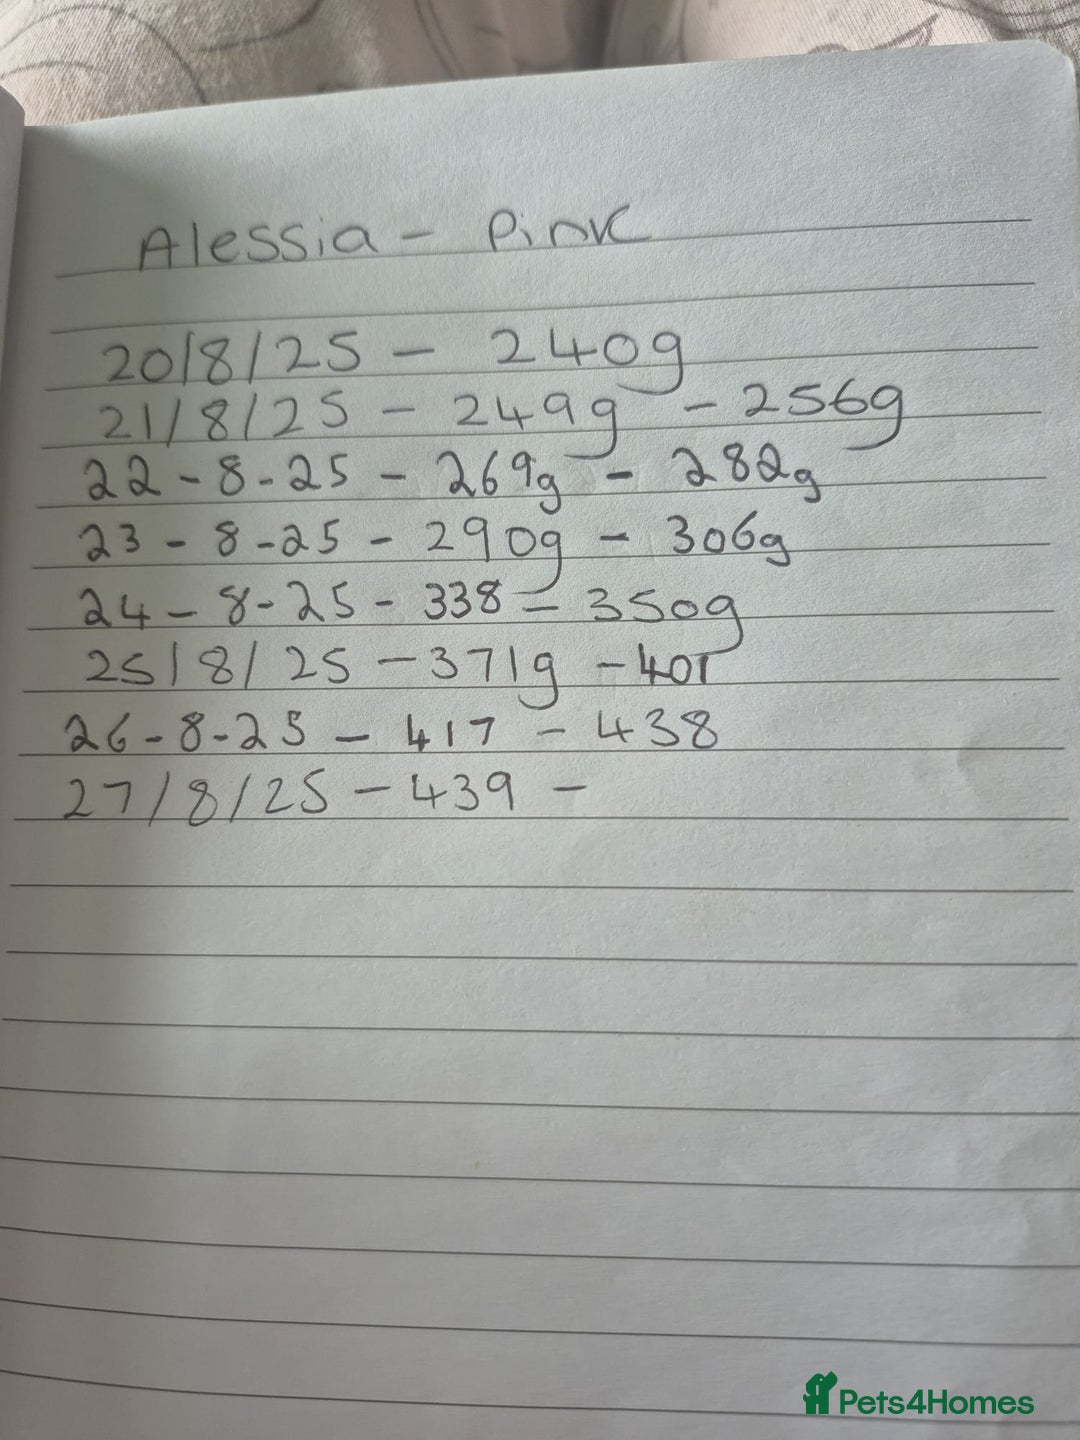 Alessia - Pink
20/8/25 - 240g
21/8/25 - 249g - 256g
22-8-25 - 269g - 282g
23-8-25 - 290g - 306g
24-8-25 - 338 - 350g
25/8/25 - 371g - 401
26-8-25 - 417 - 438
27/8/25 - 439 -
Pets4Homes